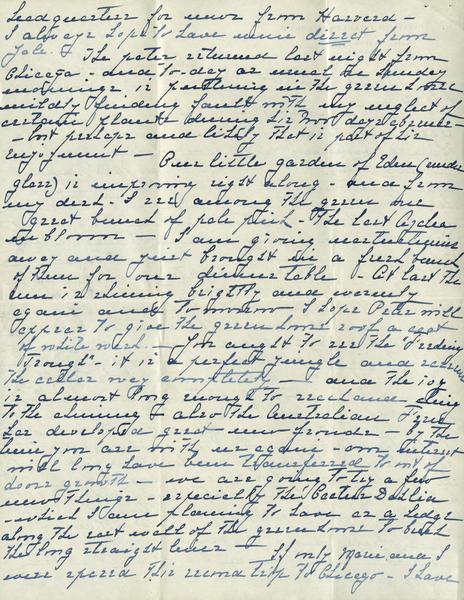 Headquarters for news from Harvard –
I always hope to have news direct from
Yale. & The pater returned last night from
Chicago – and to-day as usual on Sunday
mornings is puttering in the greenhouse
mildly finding fault with my neglect of
certain plants during his two days absence –
– but perhaps and likely that is part of his
enjoyment – Our little garden of Eden (under
glass) is improving right along – and from
my desk I see among the green one
great bunch of pale pink – the last Azalea
in bloom – I am giving nasturtiums
away and just brought in a fresh bunch
of them for our dinner table. At last the
sun is shining brightly and warmly
again and tomorrow I hope Peter will
appear to give the greenhouse roof a coat
of white wash. You ought to see the
Trough" – it is a perfect jungle and
the other way completely – and the ivy
is almost long enough to reach and cling
to the chimney & also the Australian
has developed great new fronds – by the
time you are with us again – our interest
will long have been transferred to out of
doors growth – we are going to try a few
new things – especially the Cactus Dahlia
– which I am planning to have as a hedge
along the east wall of the greenhouse to break
the long straight lines – If only Marie and I
were spared this second trip to Chicago – I have